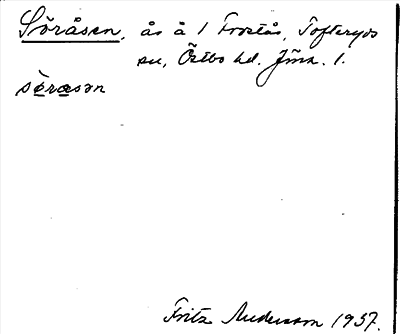 Söråsen, ås å 1 Frostås, Tofteryds
sn, Östbo hd. Jönk. l.
sö̀rasən
Fritz Andersson 1937.